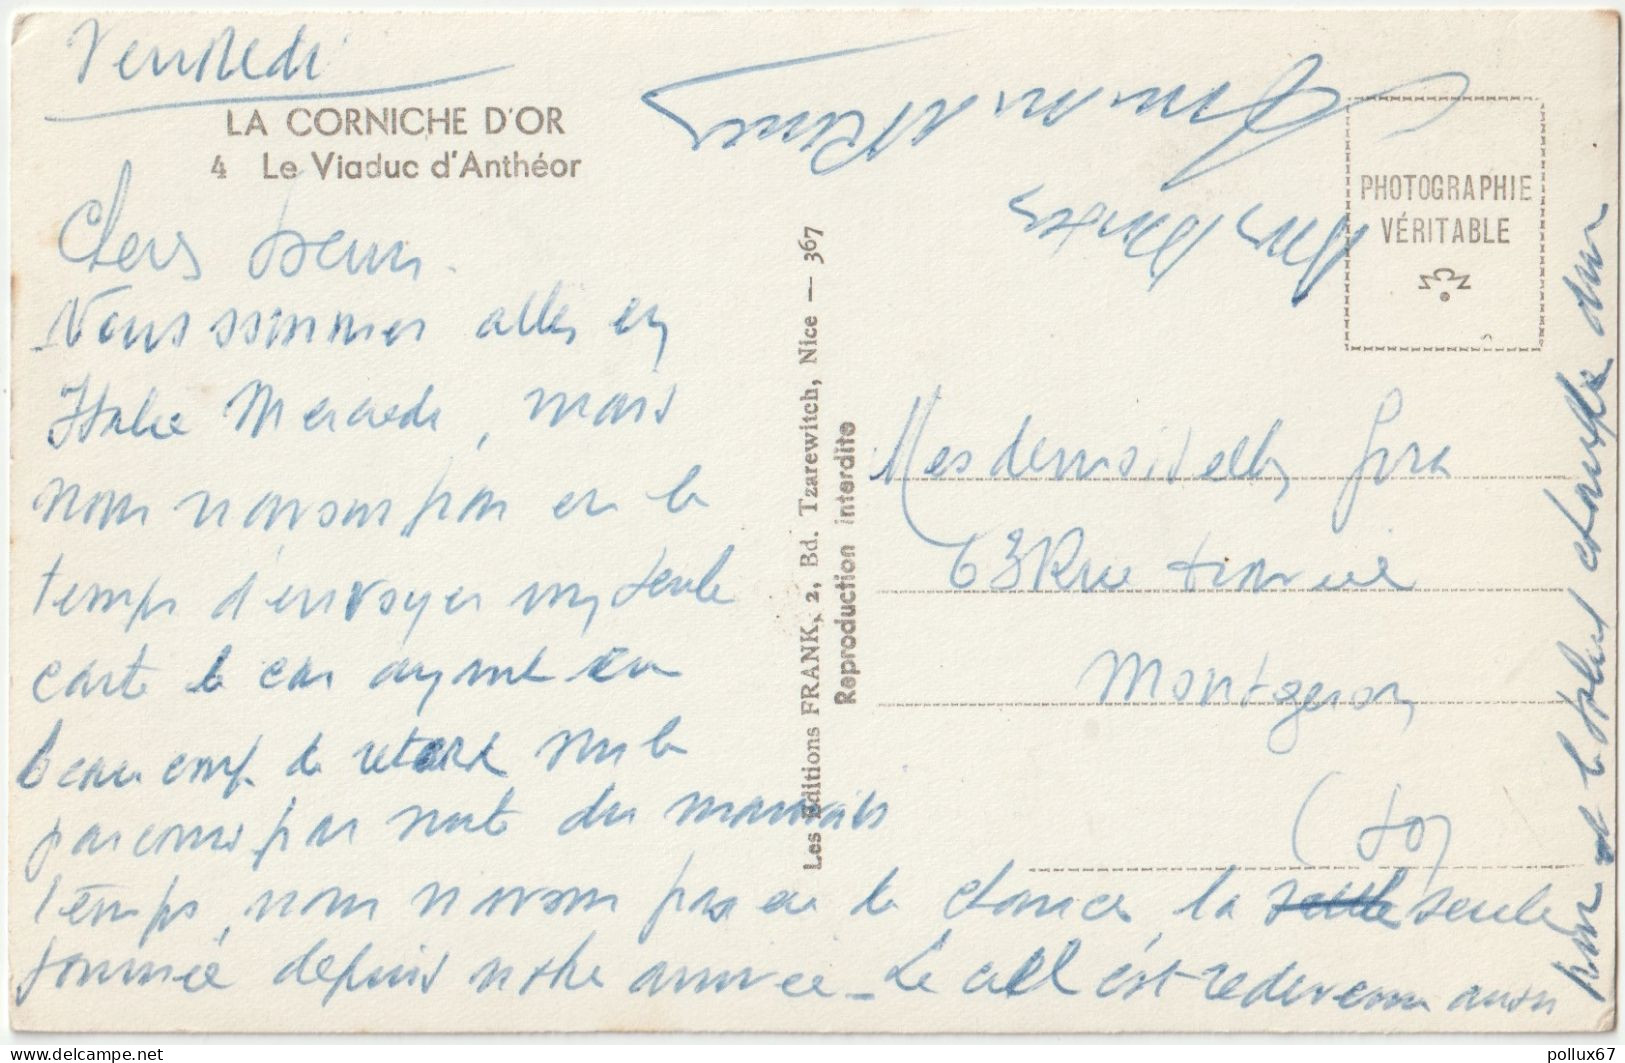 Vendredi
LA CORNICHE D'OR
4 Le Viaduc d'Anthéor
Chers
Nous sommes allés en
Italie Mercredi, mais
nous n'avons pas eu le
temps d'envoyer une seule
carte le car ayant eu
beaucoup de retard sur le
parcours par suite du mauvais
temps, nous n'avons pas eu de chance, la seule seule
journée depuis notre arrivée - Le ciel c'est redevenu aussi
pur et le soleil chauffe dur
Les Editions FRANK, 2, Bd. Tzarewitch, Nice — 367
Reproduction interdite
PHOTOGRAPHIE
VÉRITABLE
Mesdemoiselles
63 Rue
Montgeron
(S
delcampe.net
pollux67